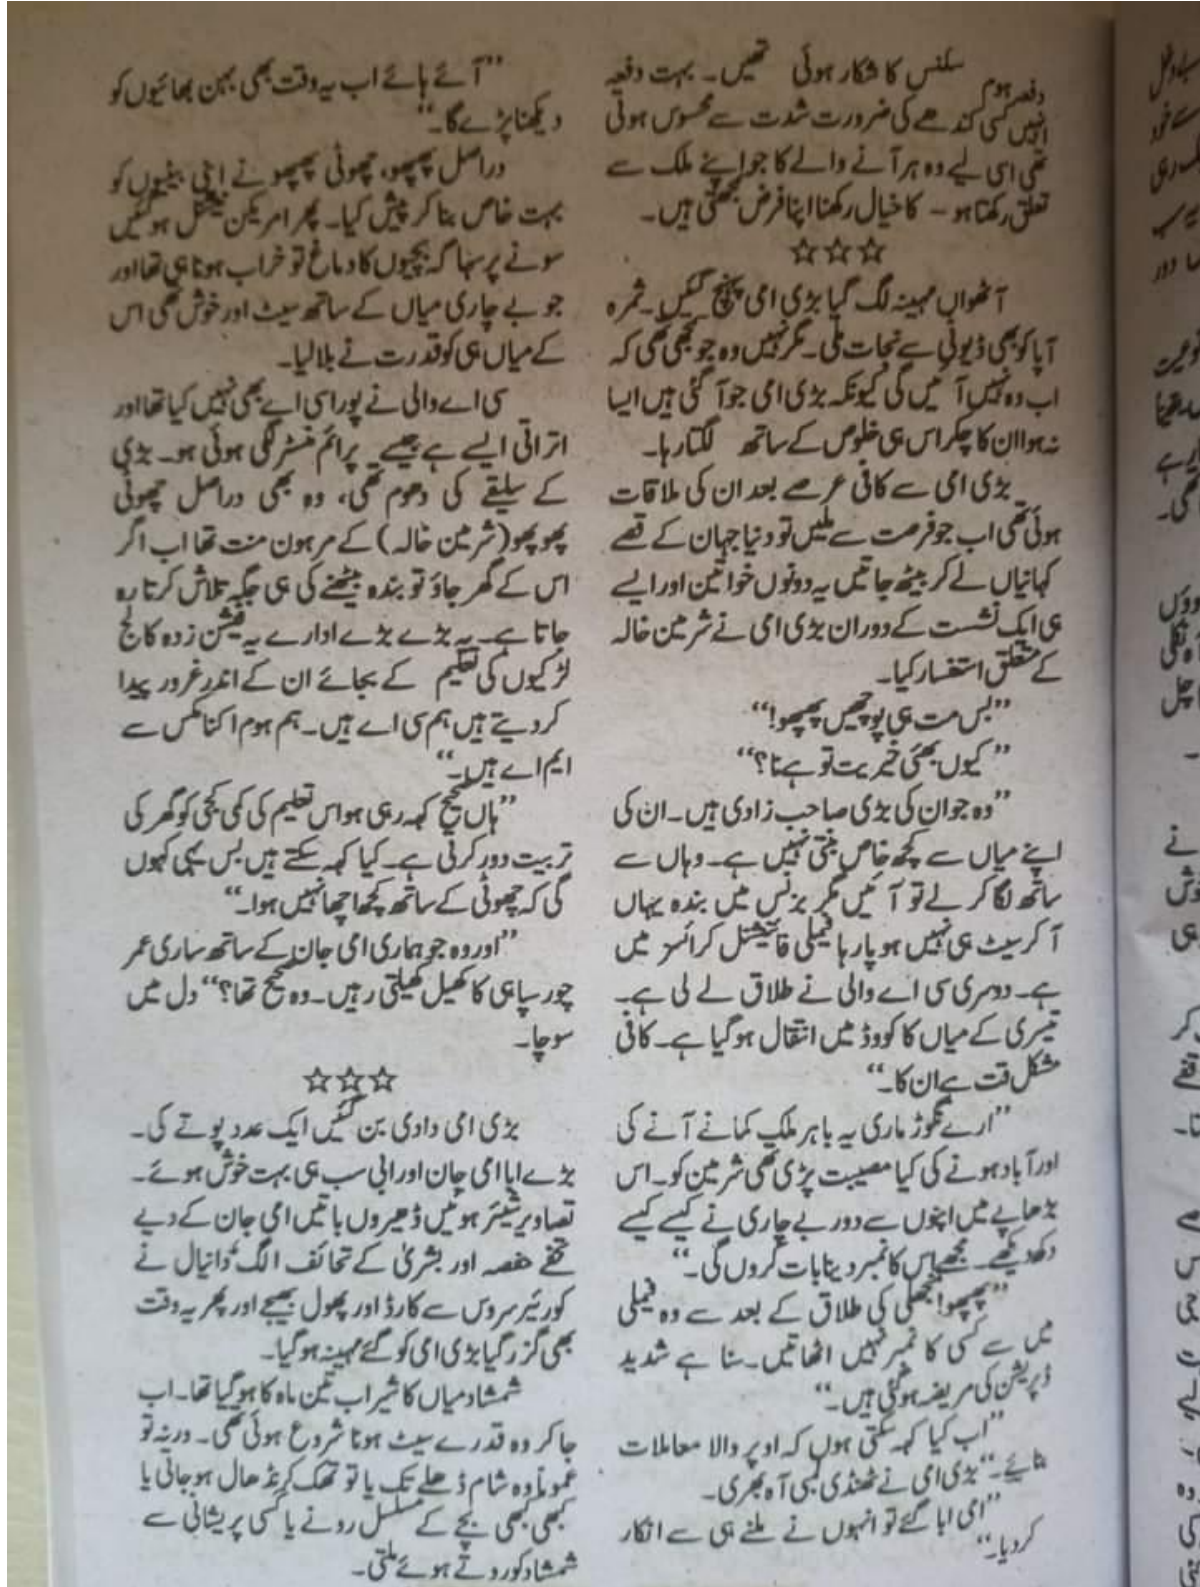 دفعہ ہوم سکنس کا شکار ہوئی تھیں۔ بہت دفعہ
انہیں کسی کندھے کی ضرورت شدت سے محسوس ہوتی
تھی اسی لیے وہ ہر آنے والے کا جو اپنے ملک سے
تعلق رکھتا ہو – کا خیال رکھنا اپنا فرض سمجھتی ہیں۔
☆☆☆
آٹھواں مہینہ لگ گیا بڑی امی پہنچ گئیں۔ ثمرہ
آپا کو بھی ڈیوٹی سے نجات ملی۔ مگر نہیں وہ جو سمجھی تھی کہ
اب وہ نہیں آئیں گی کیونکہ بڑی امی جو آ گئی ہیں ایسا
نہ ہوا ان کا چکر اس ہی خلوص کے ساتھ لگتا رہا۔
بڑی امی سے کافی عرصے بعد ان کی ملاقات
ہوئی تھی اب جو فرصت سے ملیں تو دنیا جہان کے قصے
کہانیاں لے کر بیٹھ جاتیں یہ دونوں خواتین اور ایسے
ہی ایک نشست کے دوران بڑی امی نے شرمین خالہ
کے متعلق استفسار کیا۔
”بس مت ہی پوچھیں پھپھو!“
”کیوں بھئی خیریت تو ہے نا؟“
”وہ جو ان کی بڑی صاحب زادی ہیں۔ ان کی
اپنے میاں سے کچھ خاص بنتی نہیں ہے۔ وہاں سے
ساتھ لگا کر لے تو آئیں مگر بزنس میں بندہ یہاں
آ کر سیٹ ہی نہیں ہو پا رہا فیملی فائنینشل کرائسز میں
ہے۔ دوسری سی اے والی نے طلاق لے لی ہے۔
تیسری کے میاں کا کووڈ میں انتقال ہو گیا ہے۔ کافی
مشکل قت ہے ان کا۔“
”ارے نگوڑ ماری یہ باہر ملک کمانے آنے کی
اور آباد ہونے کی کیا مصیبت پڑی تھی شرمین کو۔ اس
بڑھاپے میں اپنوں سے دور بے چاری نے کیسے کیسے
دکھ دیکھے۔ مجھے اس کا نمبر دینا بات کروں گی۔“
”پھپھو! منجھلی کی طلاق کے بعد سے وہ فیملی
میں سے کسی کا نمبر نہیں اٹھاتیں۔ سنا ہے شدید
ڈپریشن کی مریضہ ہو گئی ہیں۔“
”اب کیا کہہ سکتی ہوں کہ اوپر والا معاملات
بنائے۔“ بڑی امی نے ٹھنڈی لمبی آہ بھری۔
”امی ابا گئے تو انہوں نے ملنے ہی سے انکار
کر دیا۔“
”آئے ہائے اب یہ وقت بھی بہن بھائیوں کو
دیکھنا پڑے گا۔“
دراصل پھپھو، چھوٹی پھپھو نے اپنی بیٹیوں کو
بہت خاص بنا کر پیش کیا۔ پھر امریکن نیشنل ہو گئیں
سونے پر سہاگہ بچیوں کا دماغ تو خراب ہونا ہی تھا اور
جو بے چاری میاں کے ساتھ سیٹ اور خوش تھی اس
کے میاں ہی کو قدرت نے بلا لیا۔
سی اے والی نے پورا سی اے بھی نہیں کیا تھا اور
اتراتی ایسے ہے جیسے پرائم منسٹر لگی ہوئی ہو۔ بڑی
کے سلیقے کی دھوم تھی، وہ بھی دراصل چھوٹی
پھوپھو (شرمین خالہ) کے مرہون منت تھا اب اگر
اس کے گھر جاؤ تو بندہ بیٹھنے کی ہی جگہ تلاش کرتا رہ
جاتا ہے۔ یہ بڑے بڑے ادارے یہ فیشن زدہ کالج
لڑکیوں کی تعلیم کے بجائے ان کے اندر غرور پیدا
کر دیتے ہیں ہم سی اے ہیں۔ ہم ہوم اکنامکس سے
ایم اے ہیں۔“
”ہاں صحیح کہہ رہی ہو اس تعلیم کی کمی کجی کو گھر کی
تربیت دور کرتی ہے۔ کیا کہہ سکتے ہیں بس یہی کہوں
گی کہ چھوٹی کے ساتھ کچھ اچھا نہیں ہوا۔“
”اور وہ جو ہماری امی جان کے ساتھ ساری عمر
چور سپاہی کا کھیل کھیلتی رہیں۔ وہ صحیح تھا؟“ دل میں
سوچا۔
☆☆☆
بڑی امی دادی بن گئیں ایک عدد پوتے کی۔
بڑے ابا امی جان اور ابی سب ہی بہت خوش ہوئے۔
تصاویر شیئر ہوئیں ڈھیروں باتیں امی جان کے دیے
تحفے حفصہ اور بشریٰ کے تحائف الگ دانیال نے
کورئیر سروس سے کارڈ اور پھول بھیجے اور پھر یہ وقت
بھی گزر گیا بڑی امی کو گئے مہینہ ہو گیا۔
شمشاد میاں کا شیر اب تین ماہ کا ہو گیا تھا۔ اب
جا کر وہ قدرے سیٹ ہونا شروع ہوئی تھی۔ ورنہ تو
عموماً وہ شام ڈھلے تک یا تو تھک کر نڈھال ہو جاتی یا
کبھی کبھی بچے کے مسلسل رونے یا کسی پریشانی سے
شمشاد کو روتے ہوئے ملتی۔